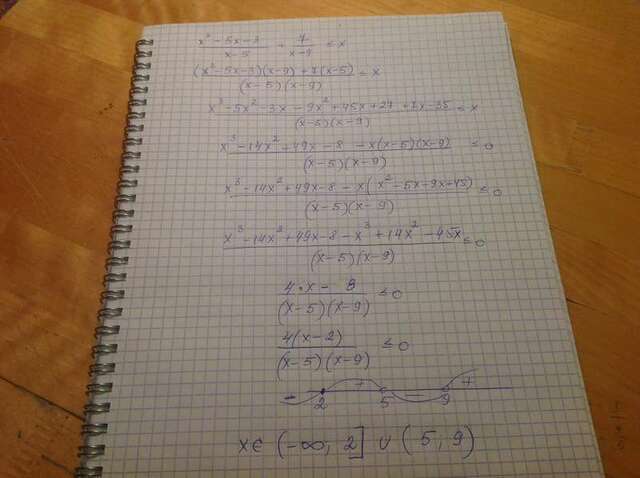 x² - 5x - 3 / x - 5 + 7 / x - 9 ≤ x
(x² - 5x - 3)(x - 9) + 7(x - 5) / (x - 5)(x - 9) ≤ x
x³ - 5x² - 3x - 9x² + 45x + 27 + 7x - 35 / (x - 5)(x - 9) ≤ x
x³ - 14x² + 49x - 8 - x(x - 5)(x - 9) / (x - 5)(x - 9) ≤ 0
x³ - 14x² + 49x - 8 - x(x² - 5x - 9x + 45) / (x - 5)(x - 9) ≤ 0
x³ - 14x² + 49x - 8 - x³ + 14x² - 45x / (x - 5)(x - 9) ≤ 0
4·x - 8 / (x - 5)(x - 9) ≤ 0
4(x - 2) / (x - 5)(x - 9) ≤ 0
- + - +
2 5 9
x ∈ (-∞; 2] ∪ (5, 9)